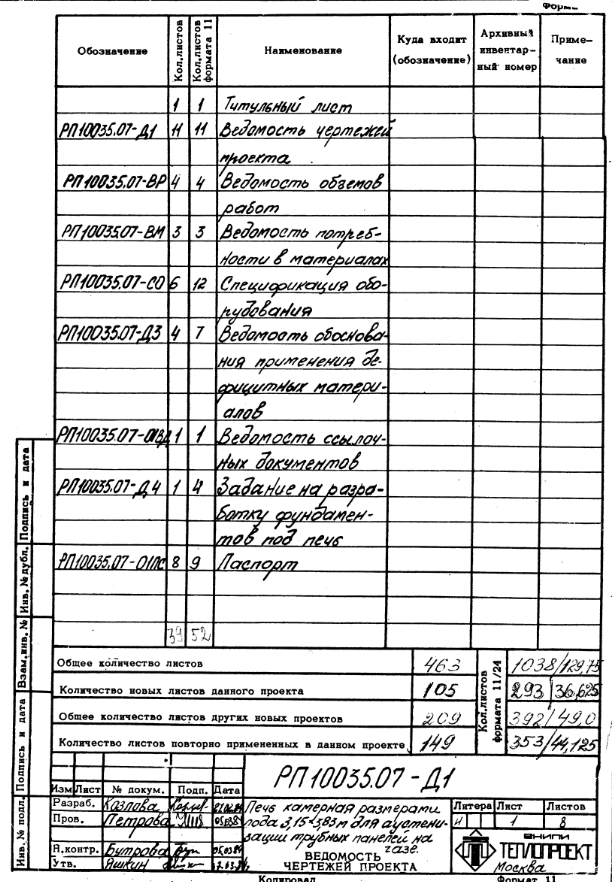 Обозначение
Кол.листов
Кол.листов формата 11
Наименование
Куда входит (обозначение)
Архивный инвентар-ный номер
Приме-чание
1 1 Титульный лист
РП10035.07-Д1 11 11 Ведомость чертежей
проекта
РП10035.07-ВР 4 4 Ведомость объемов
работ
РП10035.07-ВМ 3 3 Ведомость потреб-
ности в материалах
РП10035.07-СО 6 12 Спецификация обо-
рудования
РП10035.07-Д3 4 7 Ведомость обоснова-
ния применения де-
фицитных матери-
алов
РП10035.07-01ВД 1 1 Ведомость ссылоч-
ных документов
РП10035.07-Д4 1 4 Задание на разра
ботку фундамен-
тов под печь
РП10035.07-01ПС 8 9 Паспорт
39 52
Общее количество листов 463 1038/129,75
Количество новых листов данного проекта 105 293/36,625
Общее количество листов других новых проектов 209 392/49,0
Количество листов повторно примененных в данном проекте 149 353/44,125
Кол.листов формата 11/24
Инв. № подл. Подпись и дата Взам.инв. № Инв. № дубл. Подпись и дата
РП10035.07-Д1
Изм Лист № докум. Подп. Дата
Разраб. Козлова
Пров. Петрова
Н.контр. Бутрова
Утв. Яшкин
Печь камерная размерами
пода 3,15×3,83 м для аустени-
зации трубных панелей на
газе.
ВЕДОМОСТЬ
ЧЕРТЕЖЕЙ ПРОЕКТА
Литера Лист Листов
И 1 8
ВНИПИ
ТЕПЛОПРОЕКТ
Москва
Копировал Формат 11